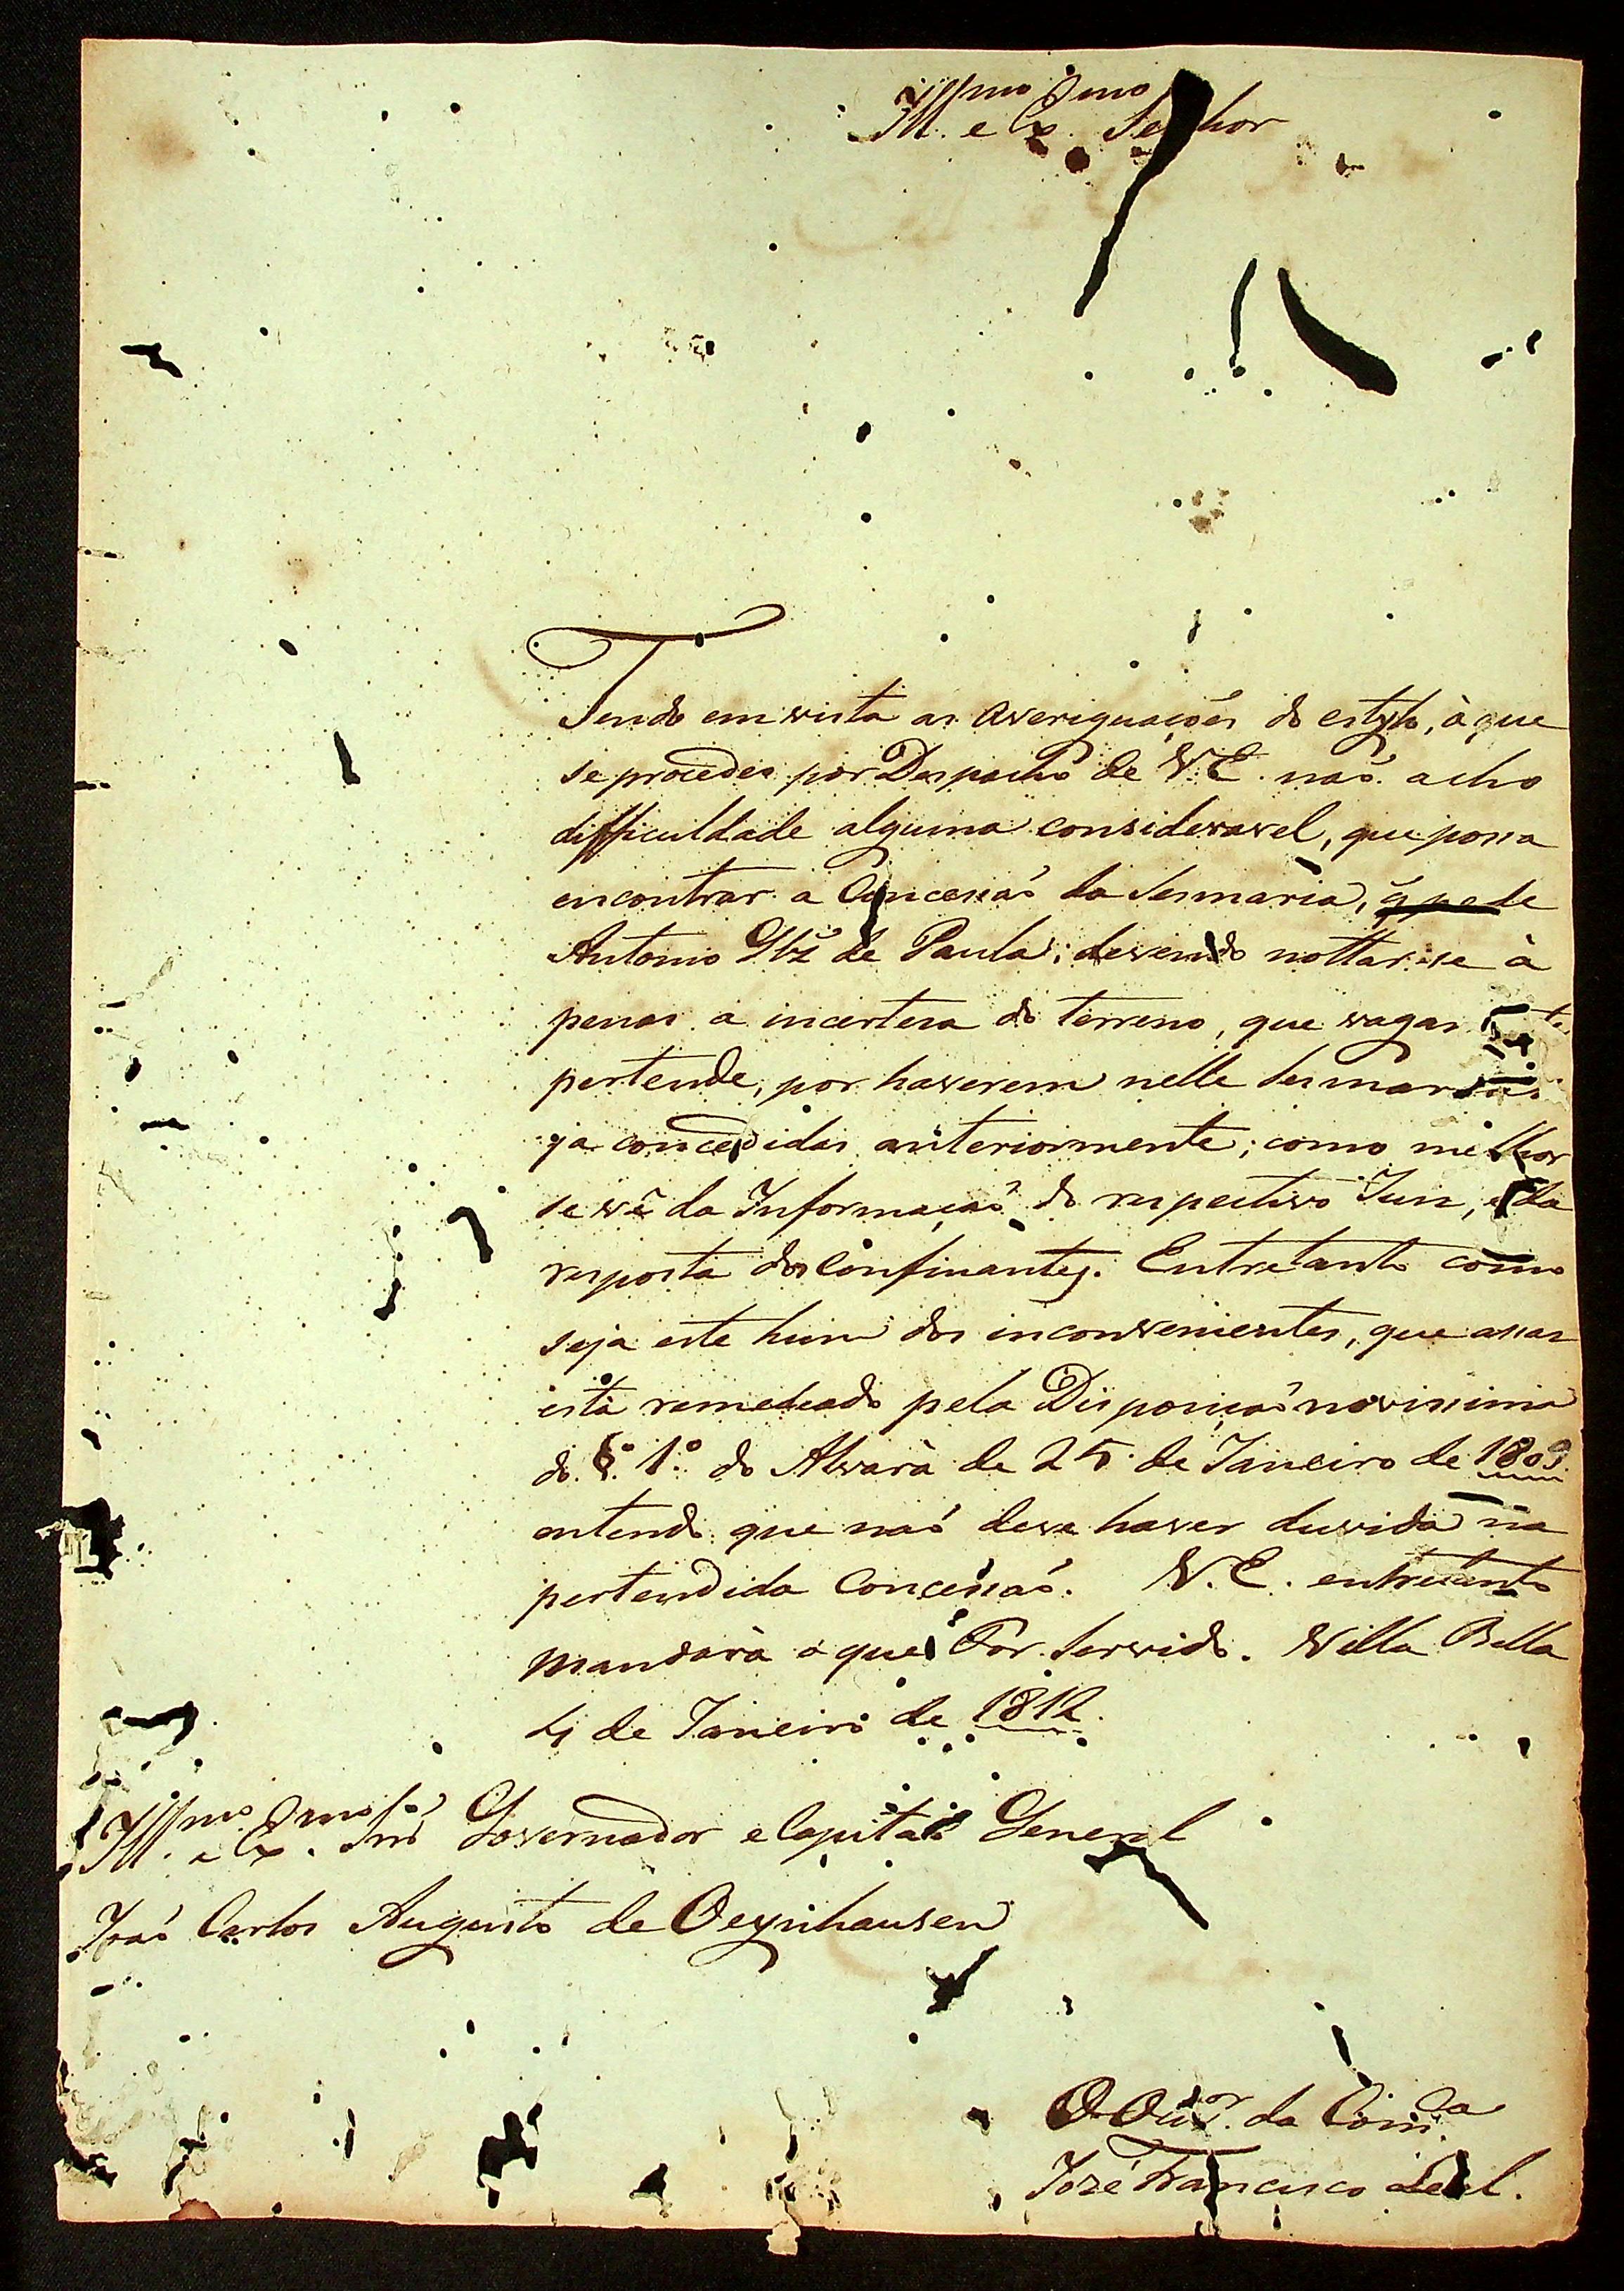 Ill.mo e Ex.mo Senhor
Tendo em vista as averiguaçoẽs do estylo, à que
se procedeo por Despacho de V.E. naõ acho
difficuldade alguma consideravel, que possa
encontrar a Concessaõ da Sesmaria, q̃ pede
Antonio de Paula; devendo nottar-se à
penas a incertesa do terreno, que vagam.te
pertende, por haverem nelle Sesmarias
ja concedidas anteriormente; como melhor
se vê da Informaçaõ do respectivo Juis, e da
resposta dos Confinantes. Entretanto como
seja este hum dos inconvenientes, que assas
està remediado pela Disposiçaõ novissima
do §. 1.º do Alvarà de 25 de Janeiro de 1809
entendo que naõ deve haver duvida na
pertendida Concessaõ. V.E. entretanto
mandarà o que For Servido. Villa Bella
4 de Janeiro de 1812.
Ill.mo e Ex.mo Snr̃ Governador e Capitaõ General
Joaõ Carlos Augusto de Oeynhausen
O Ouv.or da Com.ca
José Francisco Leal.